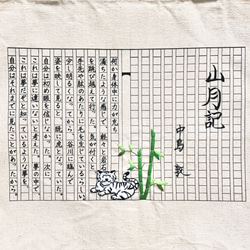 山月記
中島敦
何か身体中に力が充ち
満ちたような感じで、軽々と岩石
を跳び越えて行った。気が付くと、
手先や肱のあたりに毛を生じているらしい。
少し明るくなってから、谷川に臨んで
姿を映して見ると、既に虎となっていた。
自分は初め眼を信じなかった。次に、
これは夢に違いないと考えた。夢の中で、
これは夢だぞと知っているような夢を、
自分はそれまでに見たことがあったから。